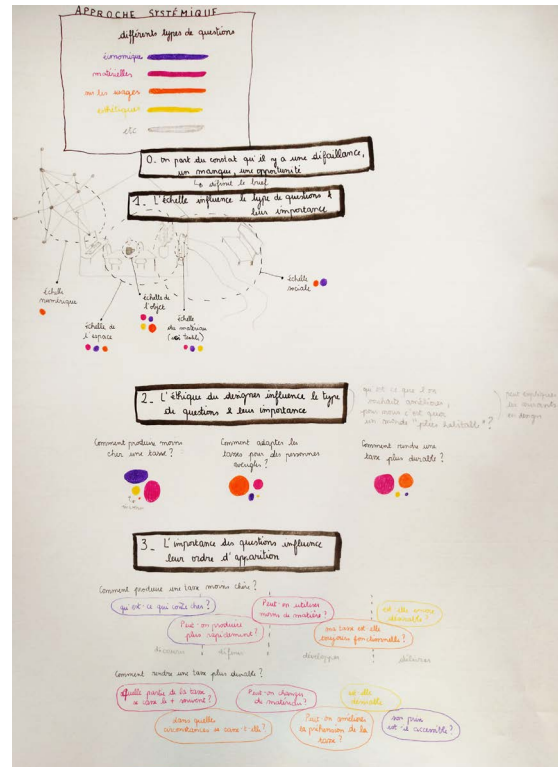 APPROCHE SYSTÉMIQUE
différents types de questions
économique
matérielles
sur les usages
esthétiques
etc
0_ on part du constat qu'il y a une défaillance,
un manque, une opportunité
↳ défaut le brief
1_ L'échelle influence le type de questions &
leur importance
échelle
numérique
échelle de
l'espace
échelle de
l'objet
échelle
du matériau
(ici textile)
échelle
sociale
2_ L'éthique du designer influence le type
de questions & leur importance
qu'est ce que l'on
souhaite améliorer,
pour nous c'est quoi
un monde "plus habitable"?
peut expliquer
les courants
en design
Comment produire moins
cher une tasse?
Comment adapter les
tasses pour des personnes
aveugles?
Comment rendre une
tasse plus durable?
3_ L'importance des questions influence
leur ordre d'apparition
Comment produire une tasse moins chère?
qu'est-ce qui coûte cher?
Peut-on produire
plus rapidement?
Peut-on utiliser
moins de matière?
ma tasse est-elle
toujours fonctionnelle?
est-elle encore
désirable?
découvrir
définir
développer
délivrer
Comment rendre une tasse plus durable?
quelle partie de la tasse
se casse le + souvent?
dans quelles
circonstances se casse-t-elle?
Peut-on changer
de matériau?
Peut-on améliorer
la préhension de la
tasse?
est-elle
désirable
son prix
est-il accessible?